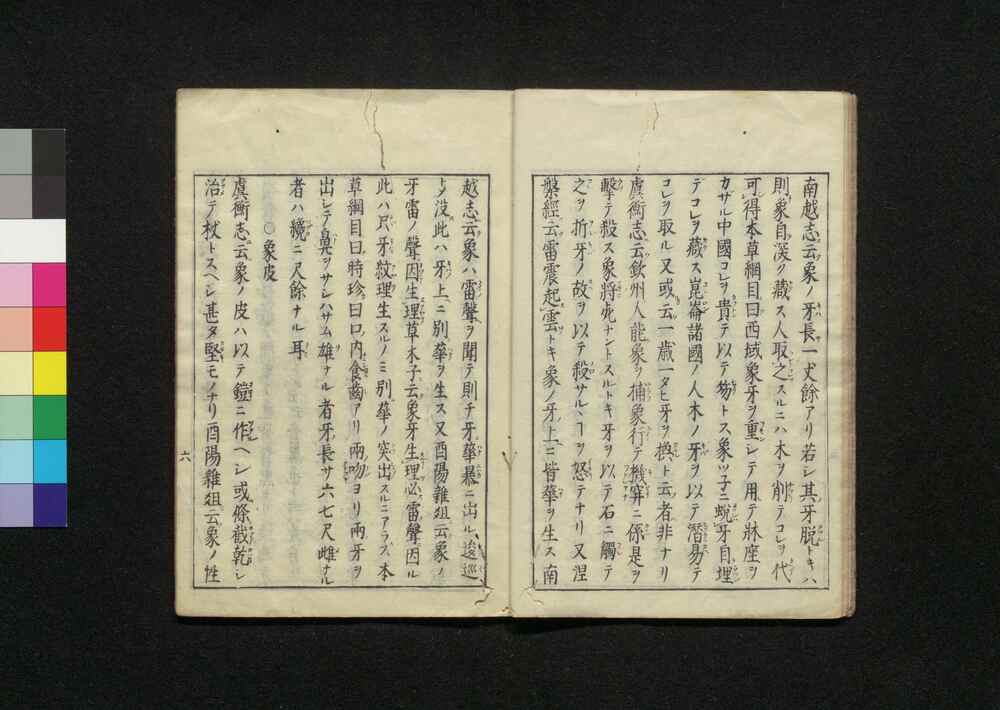 南越志云象ノ牙長一丈餘アリ若シ其牙脱トキハ
則象自深ク藏ス人取之スルニハ木ヲ削テコレヲ代
可得本草綱目曰西域象牙ヲ重シテ用テ牀座ヲ
カザル中國コレヲ貴テ以テ笏トス象ツ子ニ蛻牙自埋
テコレヲ藏ス崑崙諸國ノ人木ノ牙ヲ以テ潛易テ
コレヲ取ル又或云一歳一タヒ牙ヲ換ト云者非ナリ
虞衡志云欽州人能象ヲ捕象行テ機穽ニ係是ヲ
擊テ殺ス象將死ナントスルトキ牙ヲ以テ石ニ觸テ
之ヲ折牙ノ故ヲ以テ殺サルヽヿヲ怒テナリ又涅
槃經云雷震起雲トキ象ノ牙上ニ皆華ヲ生ス南
越志云象ハ雷聲ヲ聞テ則チ牙華暴ニ出ル逡巡
メ没此ハ牙上ニ別華ヲ生ス又酉陽雜俎云象ノ
牙雷ノ聲因生理草木子云象牙生理必雷聲因ル
此ハ只牙紋理生スルノミ別華ノ突出スルニアラズ本
草綱目曰時珍曰口内食齒アリ兩吻ヨリ兩牙ヲ
出シテ鼻ヲサシハサム雄ナル者牙長サ六七尺雌ナル
者ハ纔ニ尺餘ナル耳
○象皮
虞衡志云象ノ皮ハ以テ鎧ニ作ヘシ或條截乾シ
治テ杖トスヘシ甚タ堅モノナリ酉陽雜俎云象ノ性
六